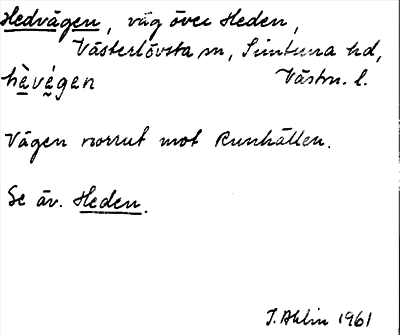 Hedvägen, väg över Heden,
Västerlövsta sn, Simtuna hd,
hèvégen Västm. l.
Vägen norrut mot Runhällen.
Se äv. Heden.
I. Ahlin 1961